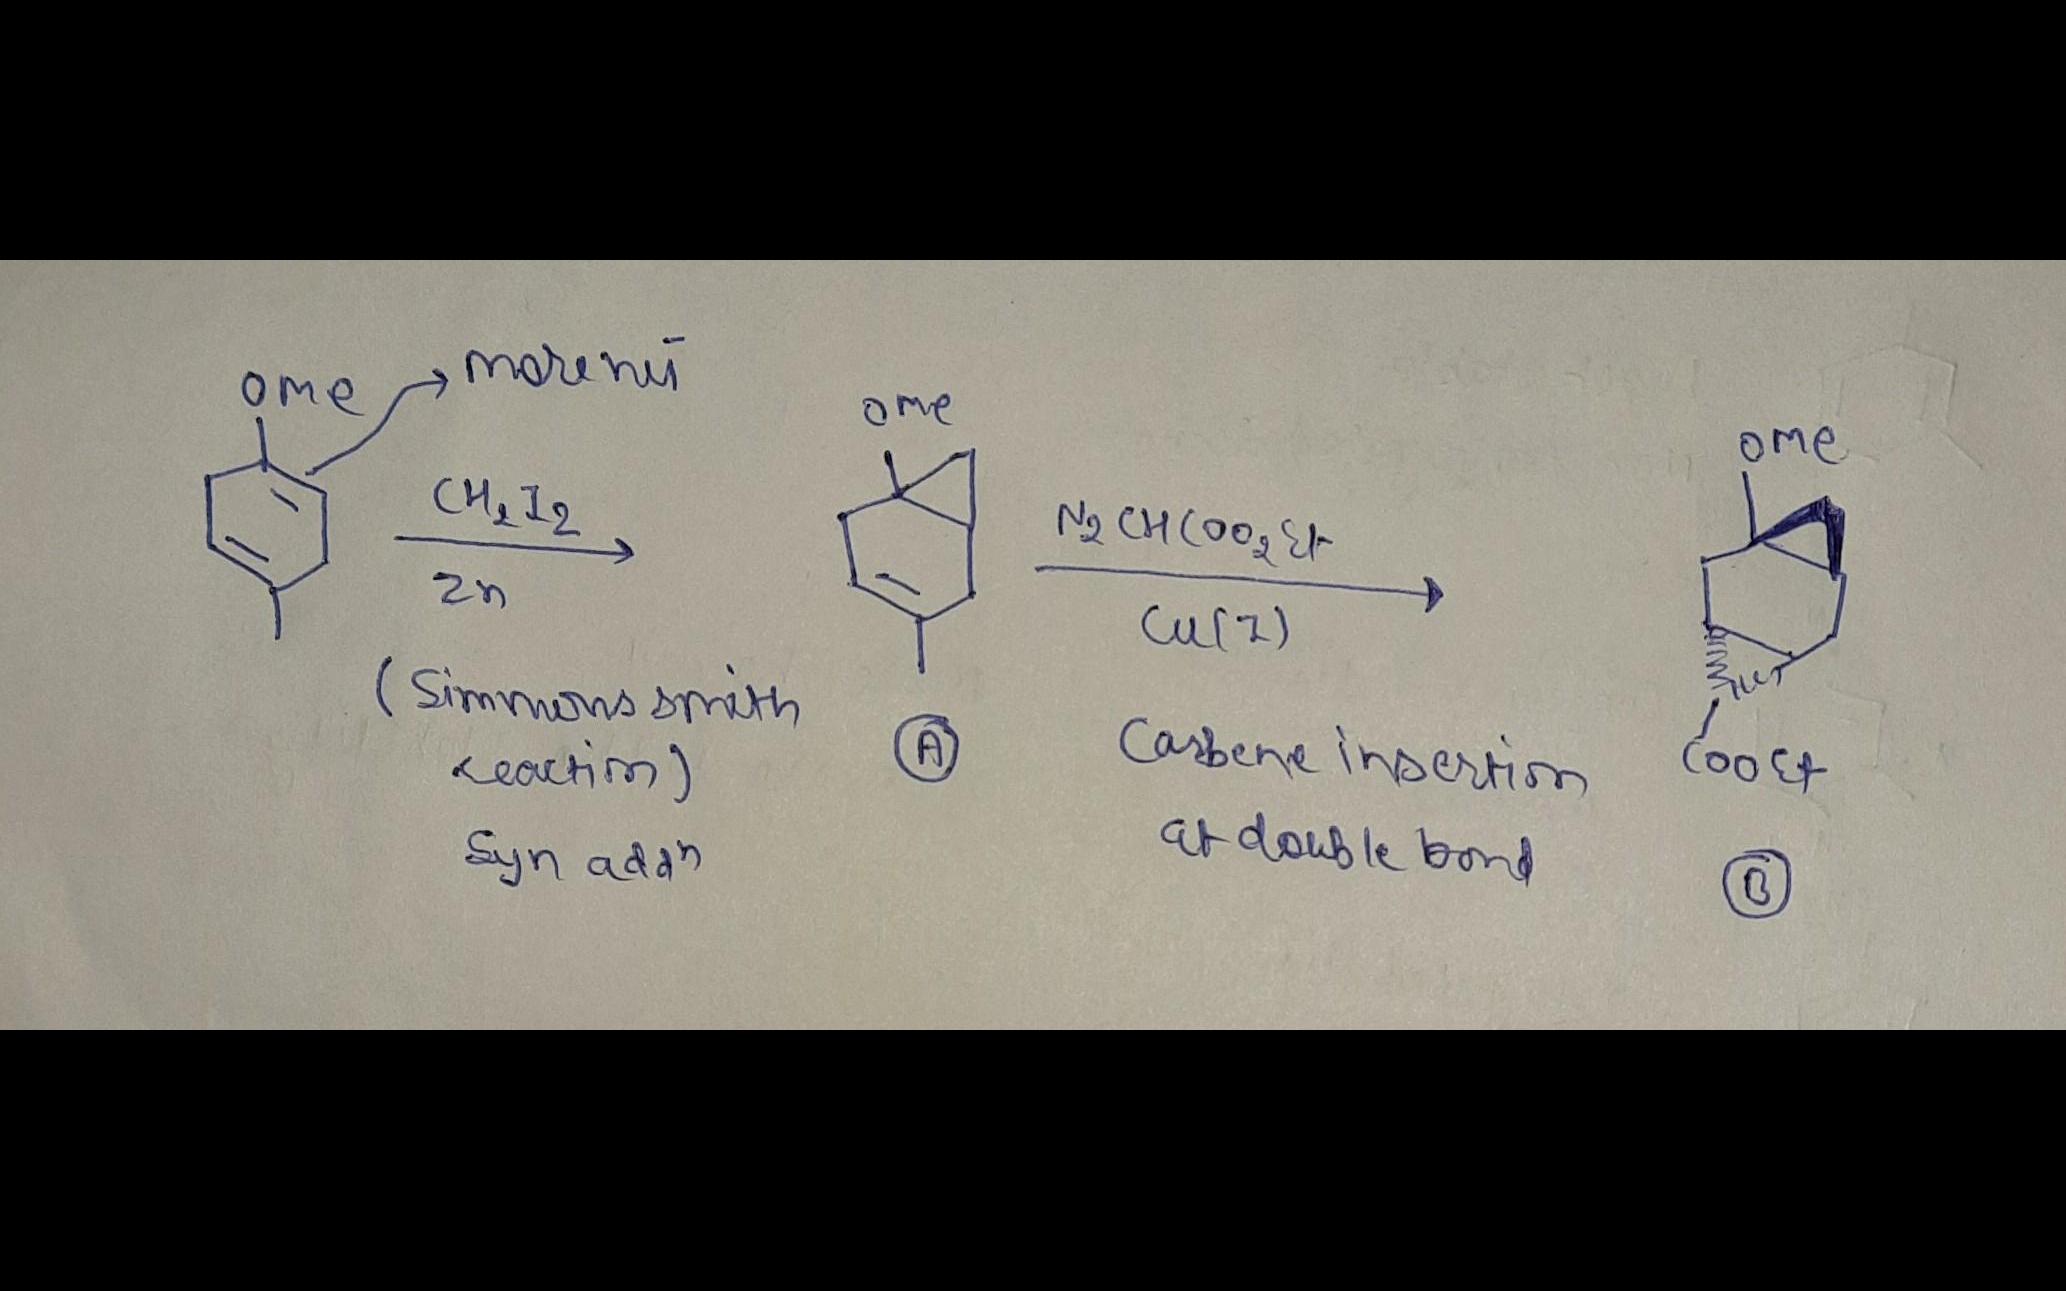 OMe
more nü
CH2I2
Zn
(Simmons smith
reaction)
Syn addn
OMe
A
N2CHCOO2Et
Cu(I)
Carbene insertion
at double bond
OMe
COOEt
B